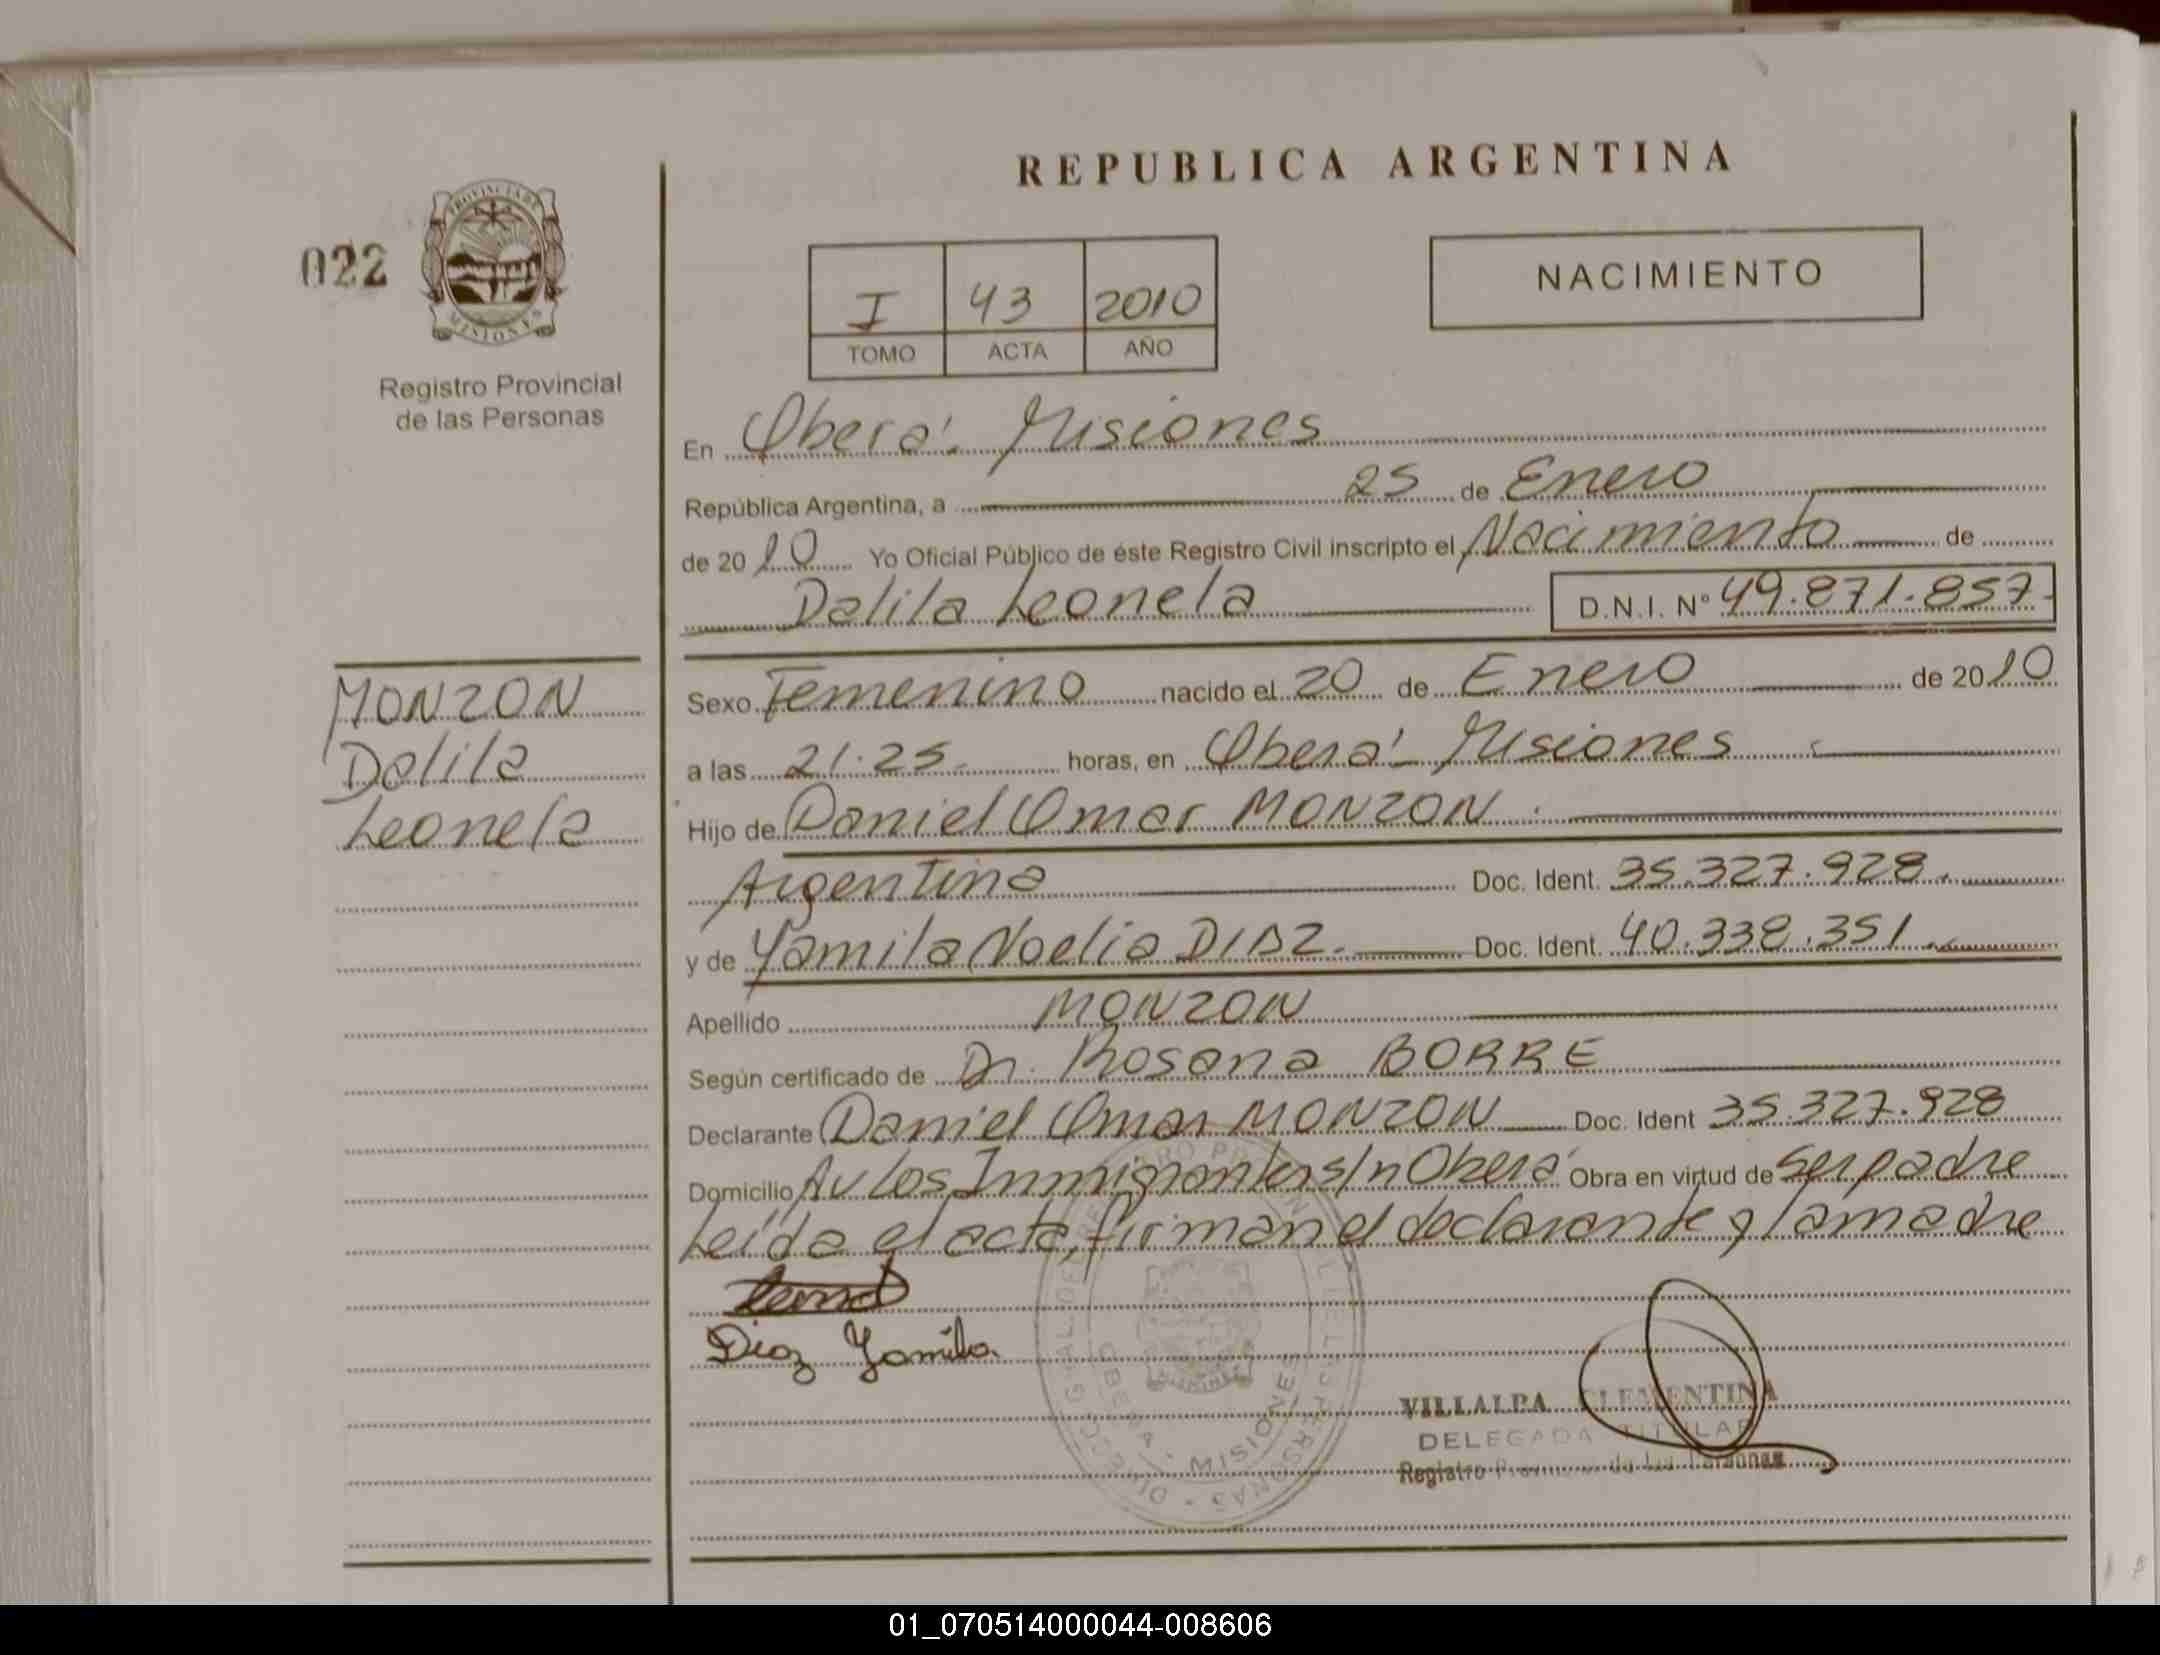 REPUBLICA ARGENTINA
022
PROVINCIA DE
MISIONES
Registro Provincial
de las Personas
I 43 2010
TOMO ACTA AÑO
NACIMIENTO
En Oberá - Misiones
República Argentina, a 25 de Enero
de 2010 Yo Oficial Público de éste Registro Civil inscripto el Nacimiento de
Dalila Leonela D.N.I. Nº 49.871.857.
MONZON
Dalila
Leonela
Sexo Femenino nacido el 20 de Enero de 2010
a las 21.25 horas, en Oberá - Misiones
Hijo de Daniel Omar MONZON
Argentina Doc. Ident. 35.327.928.
y de Yamila Noelia DIAZ. Doc. Ident. 40.338.351.
Apellido MONZON
Según certificado de Dr. Rosana BORRE
Declarante Daniel Omar MONZON Doc. Ident 35.327.928
Domicilio Av Los Inmigrantes s/n Oberá Obra en virtud de Ser padre
Leída el acta, firman el declarante y la madre
Diaz Yamila
OBERA - MISIONES
VILLALBA CLEMENTINA
DELEGADA TITULAR
Registro Provincial de las Personas
01_070514000044-008606